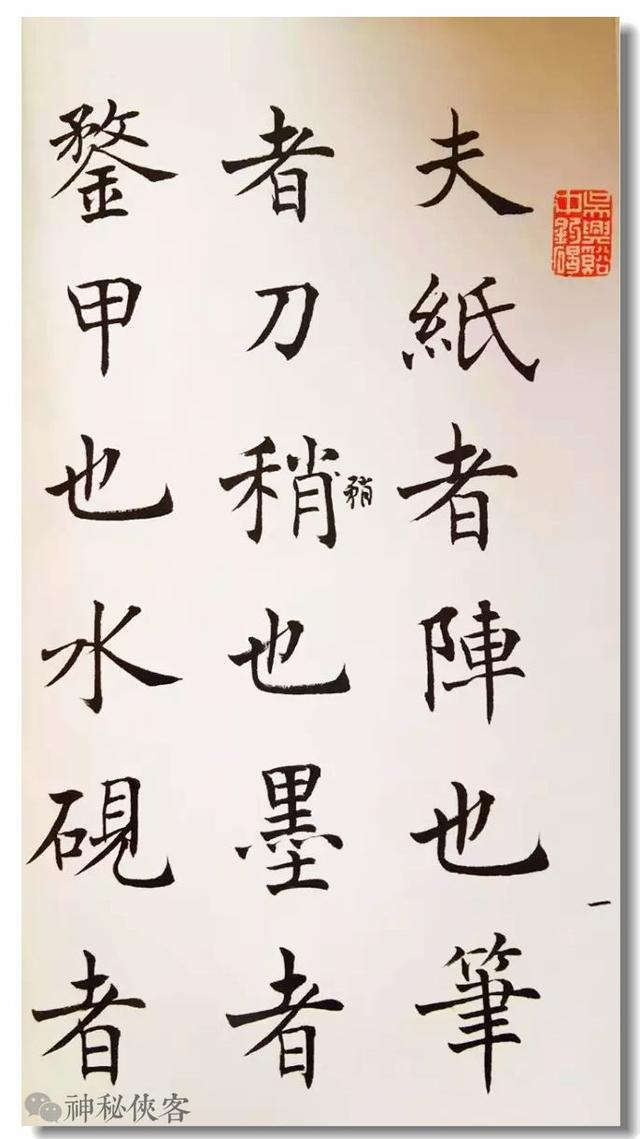 夫紙者陣也筆
者刀稍也墨者
矟
鍪甲也水硯者
一
神秘俠客